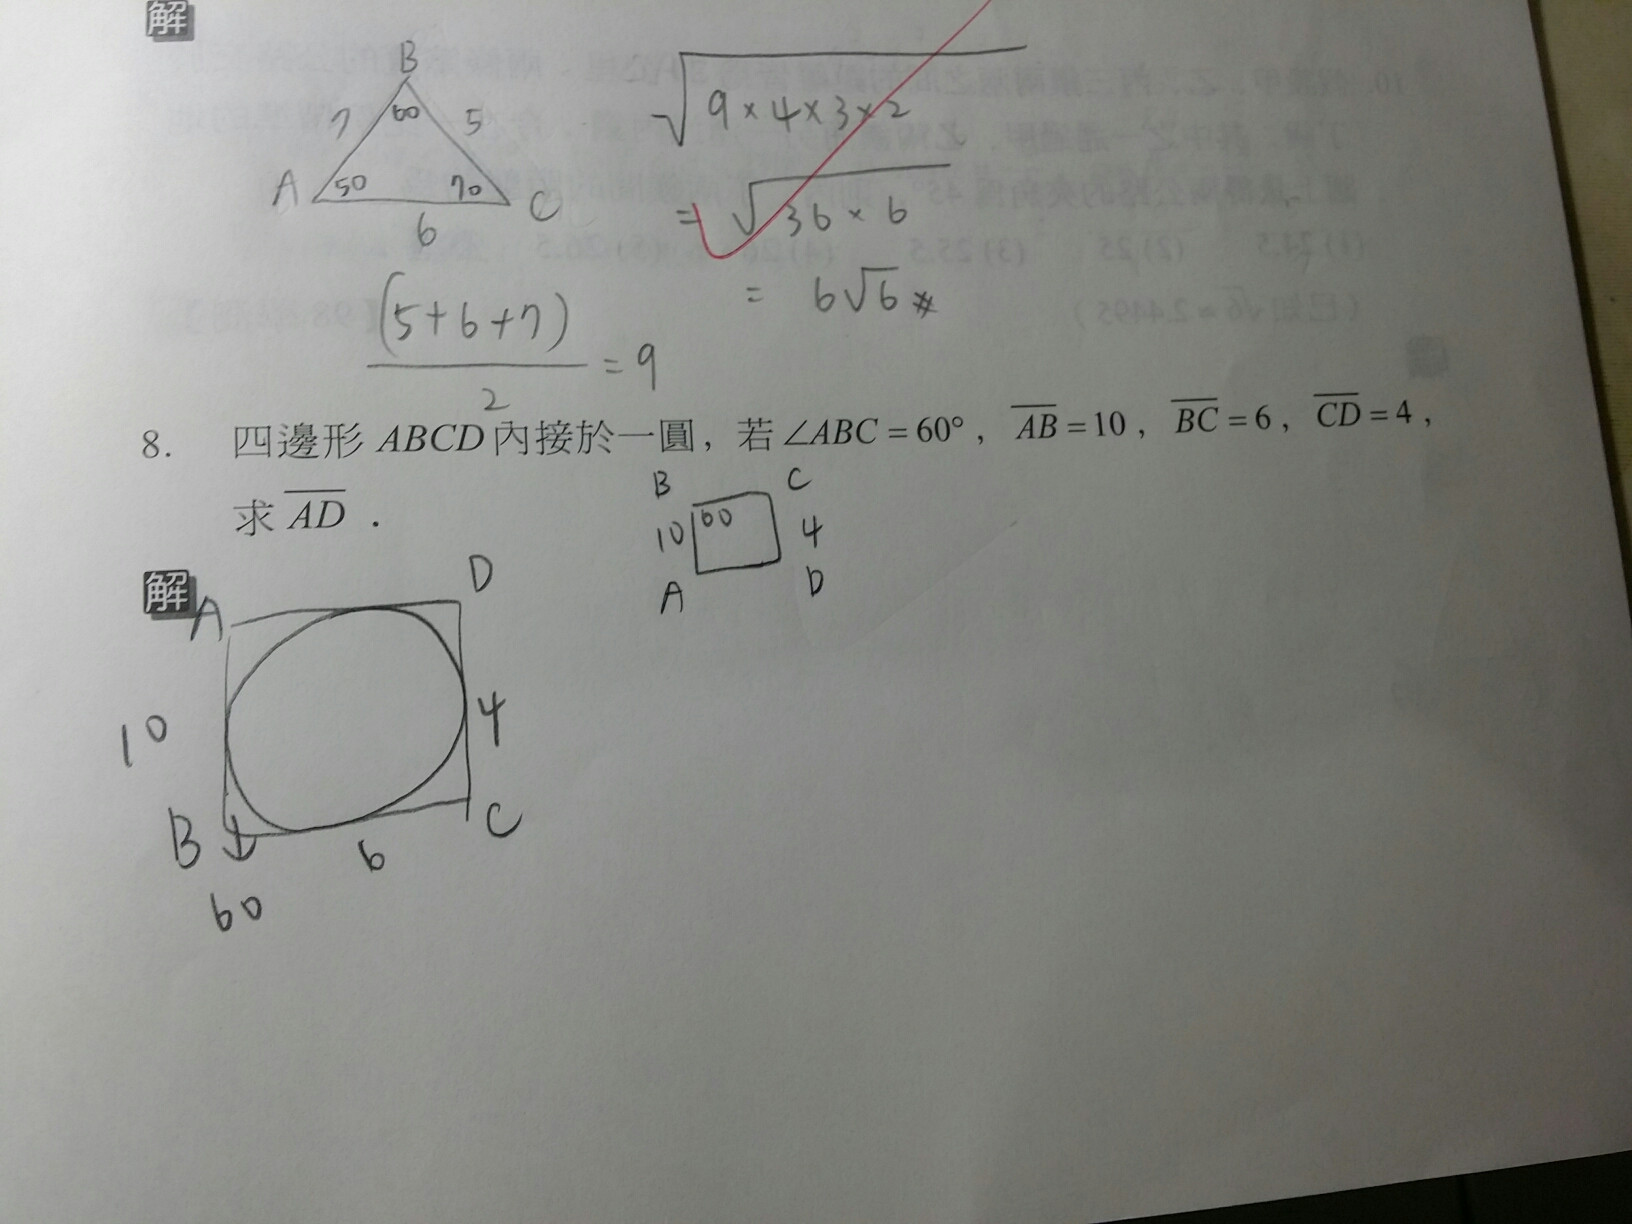 解
B
7 60 5
A 50 70 C
6
√9×4×3×2
= √36×6
= 6√6 *
(5+6+7)/2 = 9
8. 四邊形 ABCD 內接於一圓，若 ∠ABC = 60°，AB = 10，BC = 6，CD = 4，
求 AD．
B C
10 60 4
A D
解
A D
10 4
B C
60 6